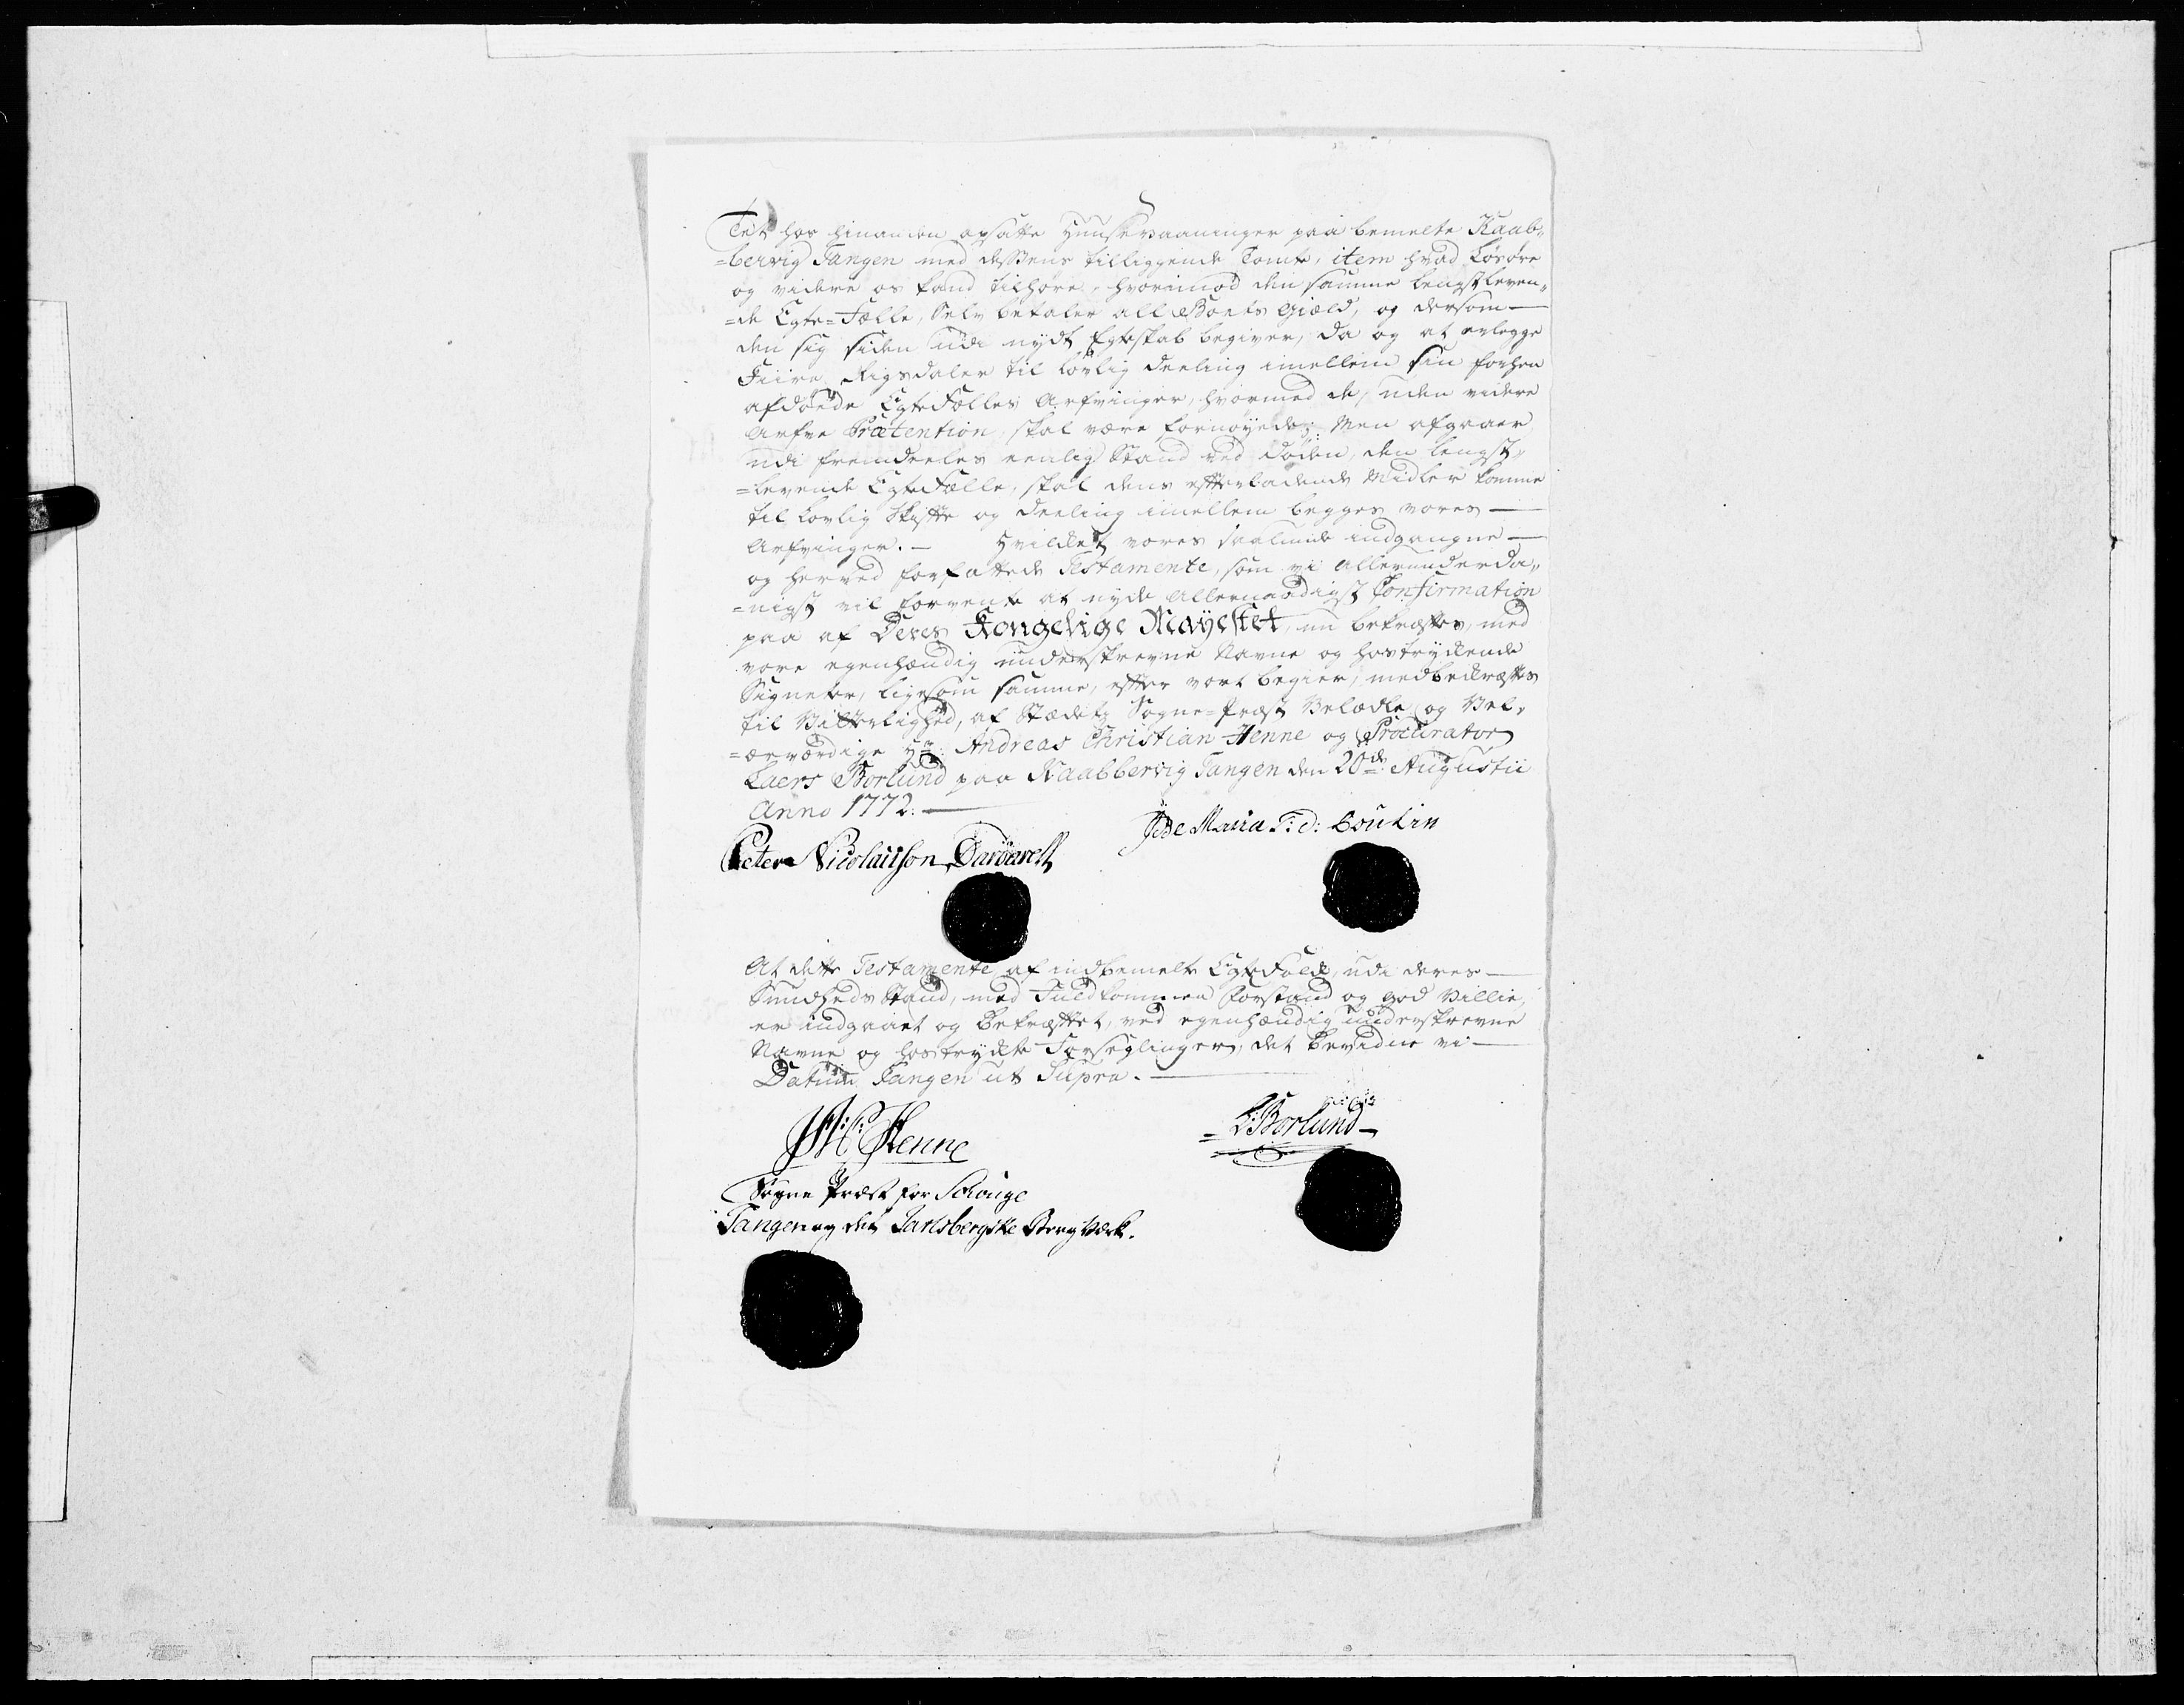 Tet hos hinanden opsatte Huuse waaninger paa bemelte Kaab„
=bervig Tangen med dessens tilliggende Tomt, item hvad Løsøre
og videre os kand tilhøre, hvorimod den samme lengstleven„
=de Egte=Fælle, Selv betaler all Boets Giæld, og dersom
den sig siden udi nydt Egteskab begiver, da og at erlegge
Fiire Rigsdaler til lovlig deeling imellem sin forhen
afdøde EgteFælles Arfvinger, hvormed de, uden videre
Arfve Prætention, skal være fornøyede; Men afgaaer
udi fremdeeles eenlig Stand ved døden, den lengst„
=levende EgteFælle, skal dens efterladende Midler komme
til lovlig Skifte og deeling imellem begges vores
Arfvinger. — Hvilket vores saalunde indgangne
og herved forfattede Testamente, som vi allerunderda„
=nigst vil forvente at nyde allernaadigst Confirmation
paa af Deres Kongelige Mayestet, nu bekræftes, med
vore egenhændig underskrevne Navne og hostrykkende
Signeter, ligesom samme, efter vort begier, medbekræftes
til Vitterlighed, af Stædets Sogne=Præst Velædle og Vel„
=ærværdige Hr: Andreas Christian Henne og Procurator
Laers Borlund paa Kaabbervig Tangen den 20de Augustii
Anno 1772.
Peter Nicolaisson Darbarett
Maria
At dette Testamente af indbemelte EgteFolk, udi deres
Sundheds Stand, med Fuldkommen Forstand og god Villie,
er indgaaet og bekræftet, ved egenhændig underskrevne
Navne og hostrykte Forseglinger, det bevidne vi
Datum Tangen ut Supra.
A: C: Henne
L: Borlund
Sogne Præst for
Tangen og det Jarlsbergske Berg Værk.